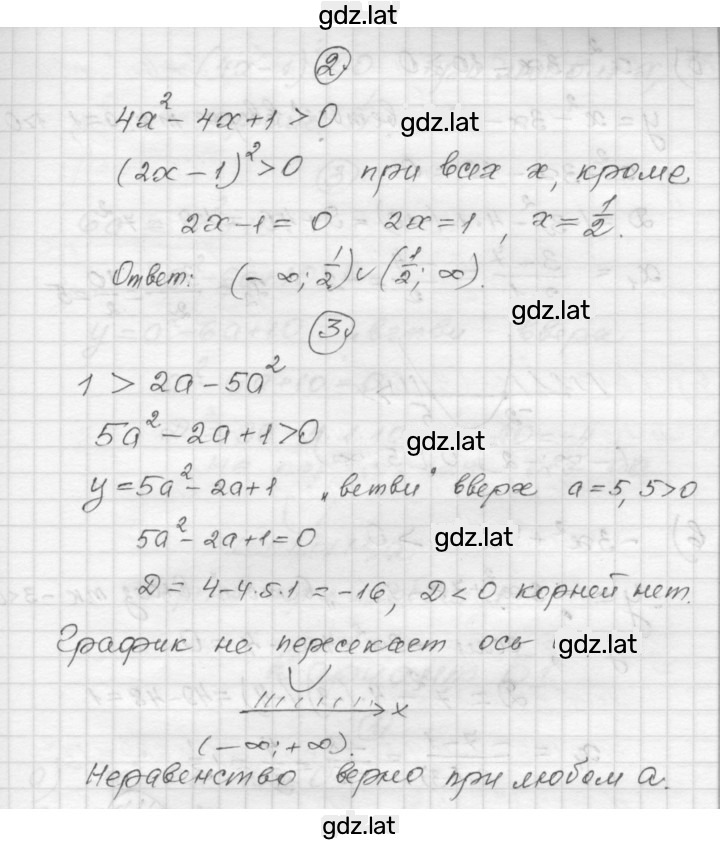 gdz.lat
2.
4x² - 4x + 1 > 0 gdz.lat
(2x - 1)² > 0 при всех x, кроме
2x - 1 = 0 2x = 1, x = 1/2.
Ответ: (-∞; 1/2) ∪ (1/2; ∞).
gdz.lat
3.
1 > 2a - 5a²
5a² - 2a + 1 > 0 gdz.lat
y = 5a² - 2a + 1 „ветви" вверх a = 5, 5 > 0
5a² - 2a + 1 = 0 gdz.lat
D = 4 - 4·5·1 = -16, D < 0 корней нет.
График не пересекает ось gdz.lat
x
(-∞; +∞).
Неравенство верно при любом a.
gdz.lat